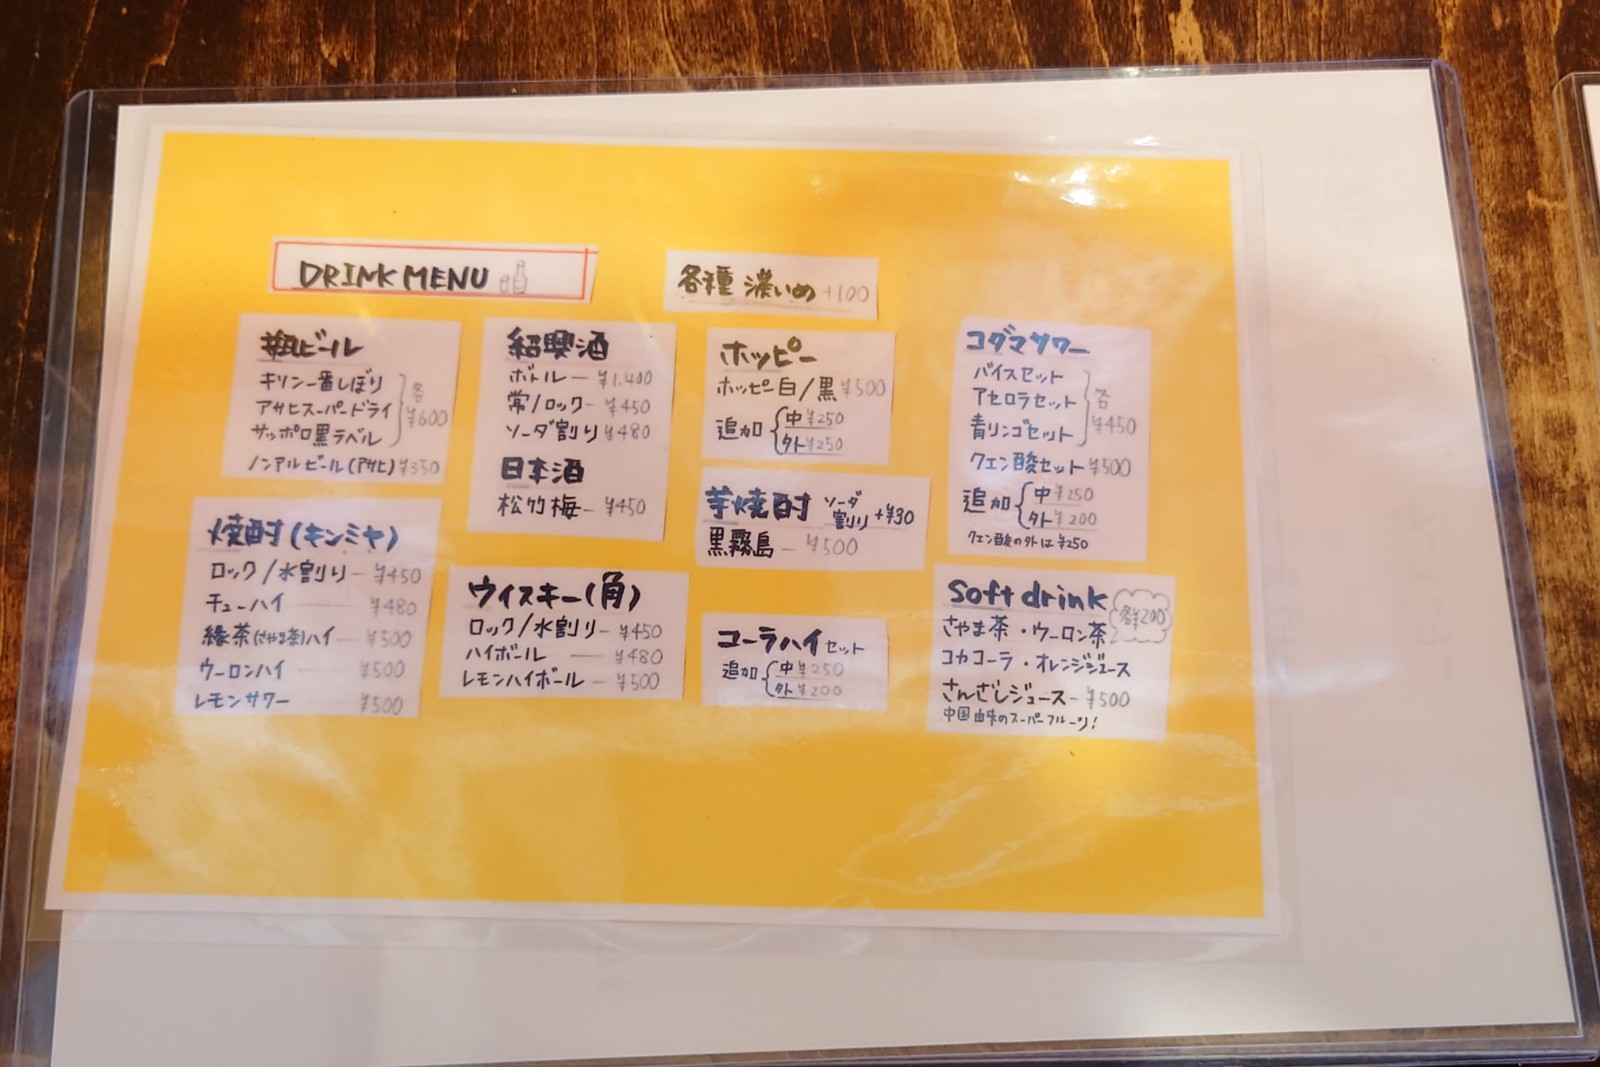 DRINK MENU
各種 濃いめ +100
瓶ビール
キリン一番しぼり
アサヒスーパードライ
サッポロ黒ラベル
各
¥600
ノンアルビール(アサヒ) ¥350
焼酎(キンミヤ)
ロック/水割り ー ¥450
チューハイ ー ¥480
緑茶(さやま茶)ハイ ー ¥500
ウーロンハイ ー ¥500
レモンサワー ー ¥500
紹興酒
ボトル ー ¥1,400
常/ロック ー ¥450
ソーダ割り ¥480
日本酒
松竹梅 ー ¥450
ウイスキー(角)
ロック/水割り ー ¥450
ハイボール ー ¥480
レモンハイボール ー ¥500
ホッピー
ホッピー白/黒 ¥500
追加 中 ¥250
外 ¥250
芋焼酎 ソーダ割り +¥30
黒霧島 ー ¥500
コーラハイ セット
追加 中 ¥250
外 ¥200
コダマサワー
バイスセット
アセロラセット
青リンゴセット
各
¥450
クエン酸セット ¥500
追加 中 ¥250
外 ¥200
クエン酸の外は ¥250
Soft drink 各¥200
さやま茶・ウーロン茶
コカコーラ・オレンジジュース
さんざしジュース ー ¥500
中国由来のスーパーフルーツ!